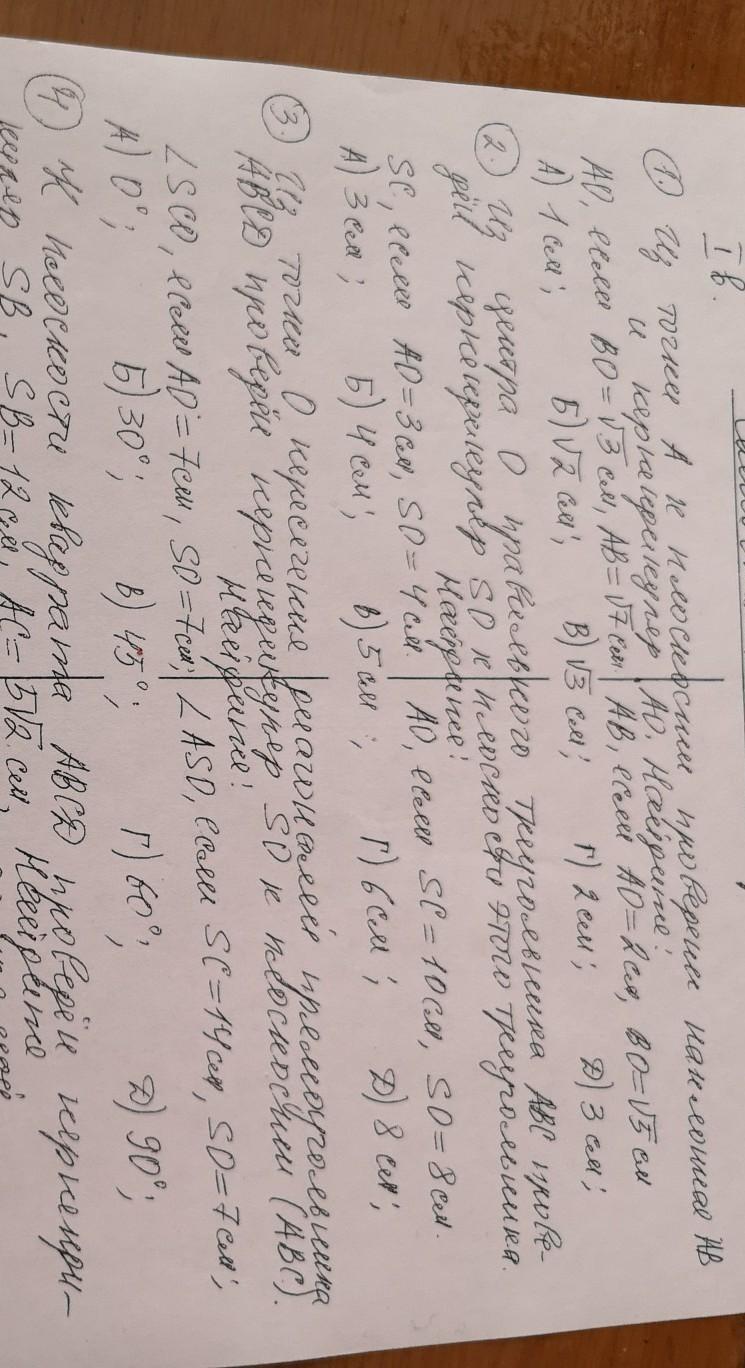 I в.
1. Из точки А к плоскости проведены наклонная АВ
и перпендикуляр АО. Найдите:
АО, если ВО=√3 см, АВ=√7 см. АВ, если АО=2см, ВО=√5 см
А) 1 см; Б) √2 см; В) √3 см; Г) 2 см; Д) 3 см;
2. Из центра О правильного треугольника АВС прове-
дён перпендикуляр SO к плоскости этого треугольника.
Найдите:
SC, если АО=3см, SO=4см. АО, если SC=10см, SO=8см.
А) 3см; Б) 4см; В) 5см; Г) 6см; Д) 8см;
3. Из точки О пересечения диагоналей прямоугольника
ABCD проведён перпендикуляр SO к плоскости (АВС).
Найдите:
∠SCO, если АО=7см, SO=7см; ∠ASO, если SC=14см, SO=7см;
А) 0°; Б) 30°; В) 45°; Г) 60°; Д) 90°;
4) К плоскости квадрата ABCD проведён перпенди-
куляр SB, SB=12см, АС=5√2 см, Найдите